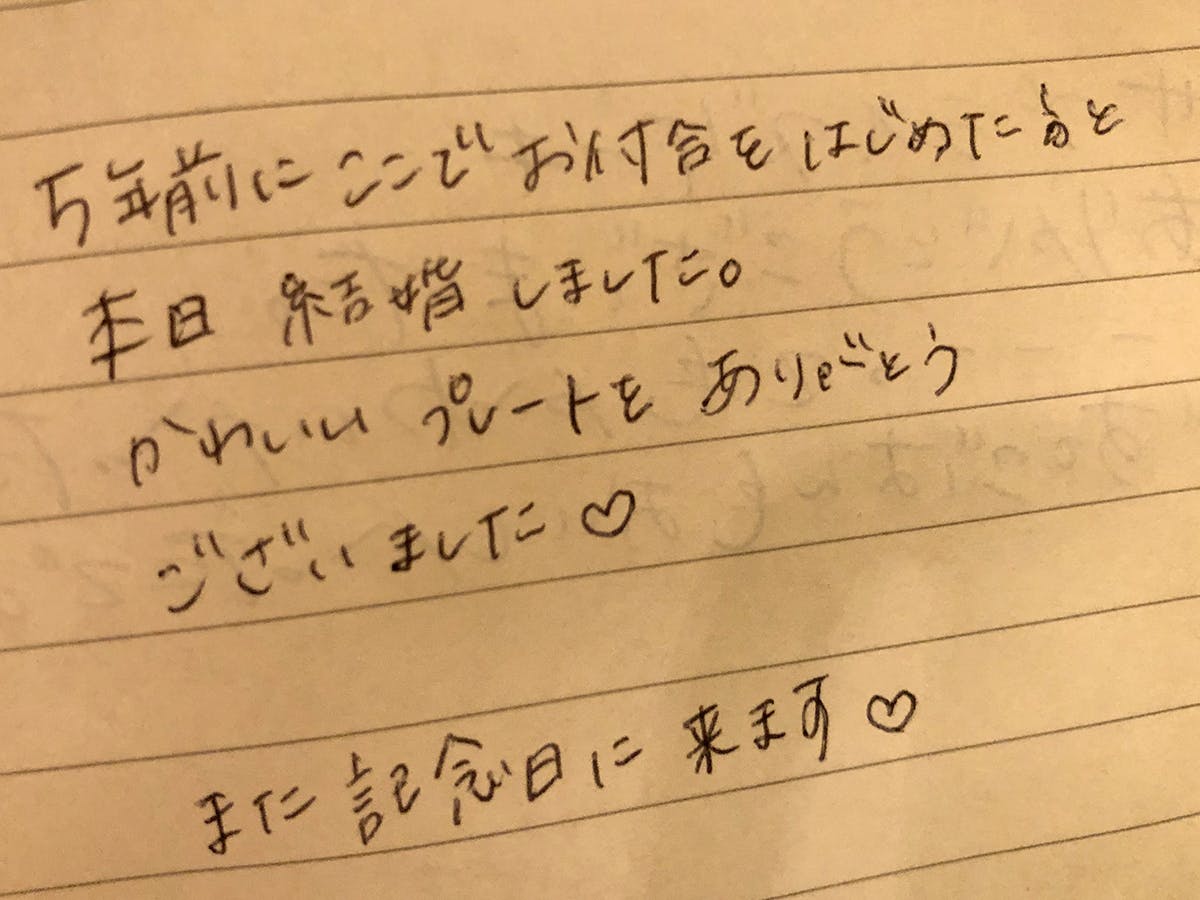 5年前にここでお付合をはじめた方と
本日 結婚しました。
かわいい プレートを ありがとう
ございました♡
また 記念日に 来ます♡